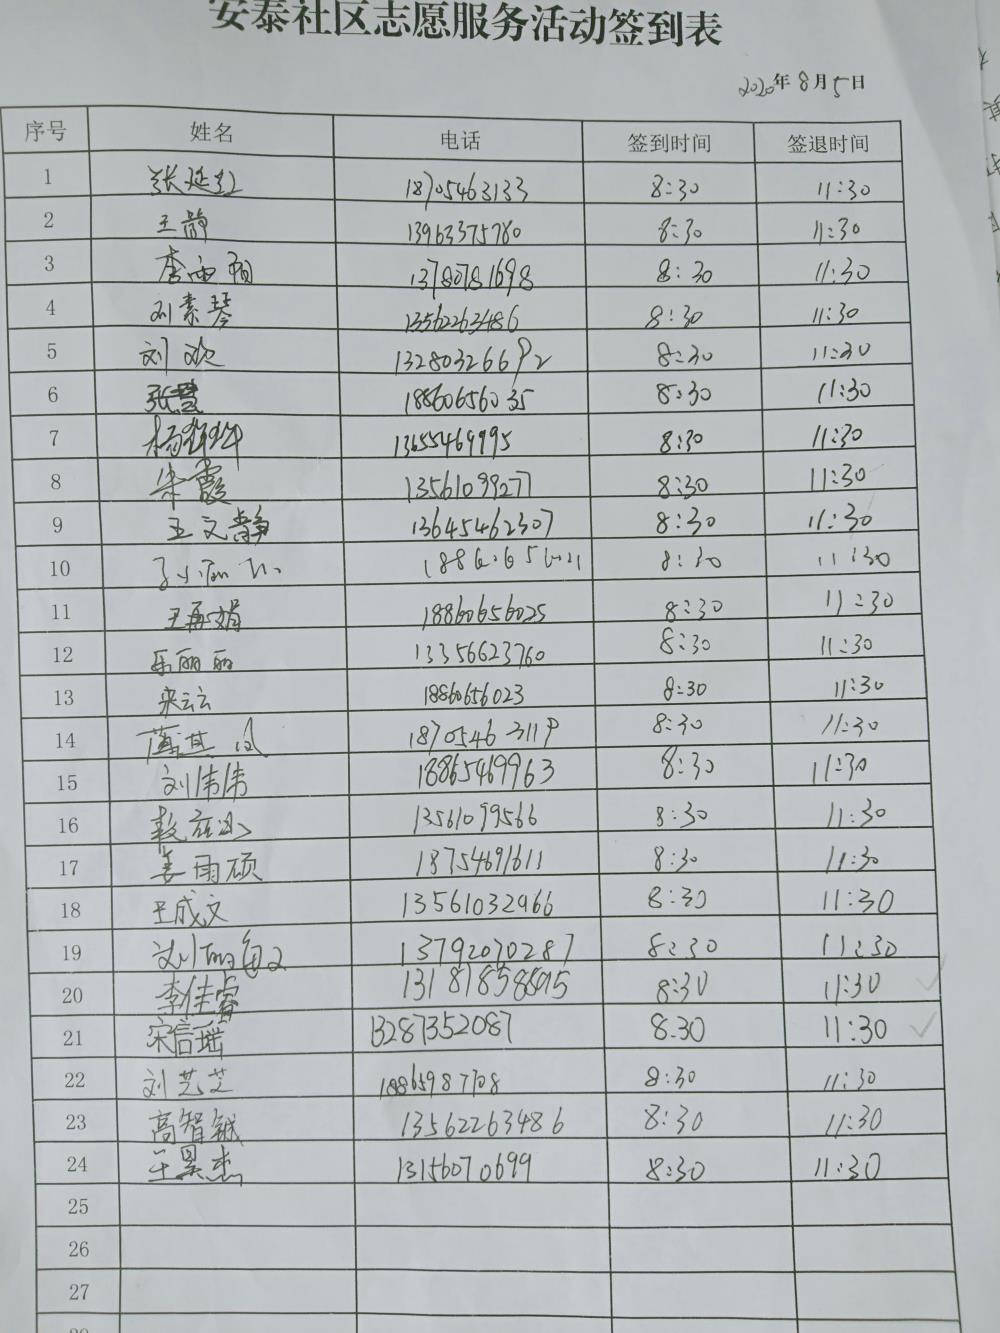 安泰社区志愿服务活动签到表
2020年8月5日
序号 姓名 电话 签到时间 签退时间
1 张延红 18705463133 8:30 11:30
2 王静 13963375780 8:30 11:30
3 李雨雨 13780781698 8:30 11:30
4 刘素琴 13562263486 8:30 11:30
5 刘欢 13280326692 8:30 11:30
6 张慧 18860656035 8:30 11:30
7 杨 13655469995 8:30 11:30
8 朱霞 13561099277 8:30 11:30
9 王文静 13645462307 8:30 11:30
10 8:30 11:30
11 王再娟 18860656025 8:30 11:30
12 岳丽丽 13356623760 8:30 11:30
13 宋云云 18860656023 8:30 11:30
14 薄其凤 18705463119 8:30 11:30
15 刘伟伟 18865469963 8:30 11:30
16 13561099566 8:30 11:30
17 姜雨硕 18754691611 8:30 11:30
18 王成文 13561032966 8:30 11:30
19 刘丽敏 13792070287 8:30 11:30
20 李佳睿 8:30 11:30
21 宋信瑶 13287352087 8:30 11:30
22 刘艺芝 18865987708 8:30 11:30
23 高智铖 13562263486 8:30 11:30
24 王昊杰 13156070699 8:30 11:30
25
26
27